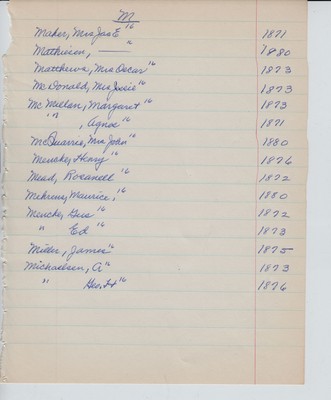 M
Maher, Mrs Jas E 16 1871
Mathiesen, —— 16 1880
Matthews, Mrs Oscar 16 1873
McDonald, Mrs Jessie 16 1873
McMillan, Margaret 16 1873
" , Agnes 16 1871
McQuarrie, Mrs John 16 1880
Menske, Henry 16 1876
Mead, Rosanell 16 1872
Mehrens, Maurice, 16 1880
Mencke, Gus 16 1872
" Ed 16 1873
Miller, James 16 1875
Michaelsen, A 16 1873
" Geo. H 16 1876